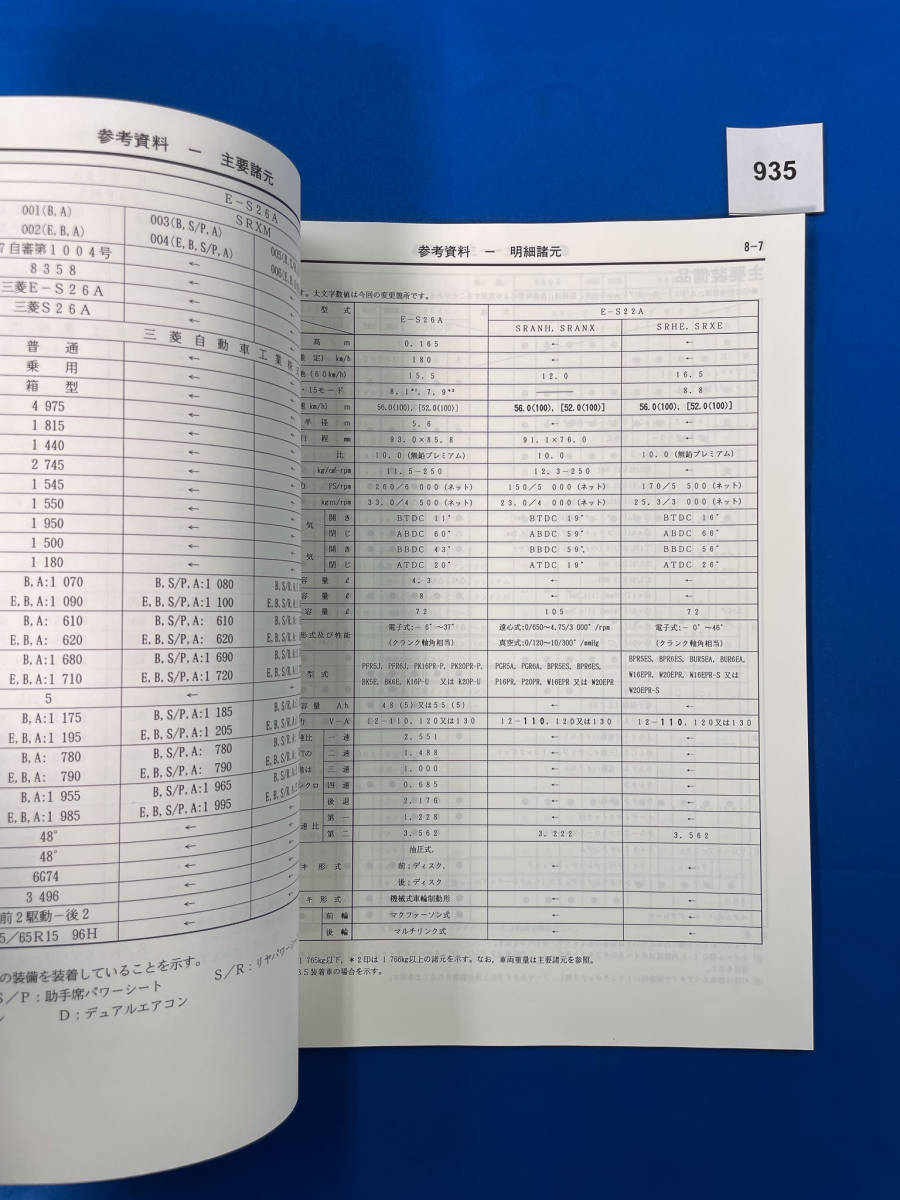 935
参考資料 － 主要諸元
E－S26A
001(B,A) 003(B,S/P,A) SRXM
002(E,B,A) 004(E,B,S/P,A)
7自審第1004号 ←
8358 ←
三菱E－S26A ←
三菱S26A ←
三菱自動車工業株
普通 ←
乗用 ←
箱型 ←
4 975 ←
1 815 ←
1 440 ←
2 745 ←
1 545 ←
1 550 ←
1 950 ←
1 500 ←
1 180 ←
B,A:1 070 B,S/P,A:1 080
E,B,A:1 090 E,B,S/P,A:1 100
B,A: 610 B,S/P,A: 610
E,B,A: 620 E,B,S/P,A: 620
B,A:1 680 B,S/P,A:1 690
E,B,A:1 710 E,B,S/P,A:1 720
5 ←
B,A:1 175 B,S/P,A:1 185
E,B,A:1 195 E,B,S/P,A:1 205
B,A: 780 B,S/P,A: 780
E,B,A: 790 E,B,S/P,A: 790
B,A:1 955 B,S/P,A:1 965
E,B,A:1 985 E,B,S/P,A:1 995
48° ←
48° ←
6G74 ←
3 496 ←
前2駆動－後2 ←
5／65R15 96H ←
の装備を装着していることを示す。
S／P：助手席パワーシート S／R：リヤパワーシー
D：デュアルエアコン
参考資料 － 明細諸元 8-7
す。太文字数値は今回の変更箇所です。
型式 E－S26A E－S22A
SRANH，SRANX SRHE，SRXE
高 m 0.165 ← ←
定) km/h 180 ← ←
(60km/h) 15.5 12.0 16.5
・15モード 8.1*¹，7.9*² ―― 8.8
km/h) m 56.0(100)，[52.0(100)] 56.0(100)，[52.0(100)] 56.0(100)，[52.0(100)]
半径 m 5.6 ← ←
行程 mm 93.0×85.8 91.1×76.0 ←
比 10.0 (無鉛プレミアム) 10.0 10.0 (無鉛プレミアム)
kg/cm²-rpm 11.5－250 12.3－250 ←
力 PS/rpm 260／6 000 (ネット) 150／5 000 (ネット) 170／5 500 (ネット)
kgm/rpm 33.0／4 500 (ネット) 23.0／4 000 (ネット) 25.3／3 000 (ネット)
気 開き BTDC 11° BTDC 19° BTDC 16°
閉じ ABDC 60° ABDC 59° ABDC 66°
気 開き BBDC 43° BBDC 59° BBDC 56°
閉じ ATDC 20° ATDC 19° ATDC 26°
容量 ℓ 4.3 ← ←
容量 ℓ 8 ← ←
容量 ℓ 72 105 72
形式及び性能 電子式：－6°～37° (クランク軸角相当) 遠心式：0/650～4.75/3 000°/rpm 真空式：0/120～10/300°/mmHg 電子式：－0°～46° (クランク軸角相当)
型式 PFR5J, PFR6J, PK16PR-P, PK20PR-P, BK5E, BK6E, K16P-U 又は K20P-U
PGR5A, PGR6A, BPR5ES, BPR6ES, P16PR, P20PR, W16EPR 又は W20EPR
BPR5ES, BPR6ES, BUR5EA, BUR6EA, W16EPR, W20EPR, W16EPR-S 又は W20EPR-S
容量 Ah 48 (5) 又は55 (5) ← ←
力 V－A 12－110，120又は130 12－110，120又は130 12－110，120又は130
速比 一速 2.551 ← ←
二速 1.488 ← ←
三速 1.000 ← ←
四速 0.685 ← ←
後退 2.176 ← ←
速比 第一 1.228 ← ←
第二 3.562 3.222 3.562
キ形式 油圧式， 前：ディスク， 後：ディスク ← ←
キ形式 機械式車輪制動形 ← ←
前輪 マクファーソン式 ← ←
後輪 マルチリンク式 ← ←
1 765kg以下，＊2印は 1 766kg以上の諸元を示す。なお，車両重量は主要諸元を参照。
BS装着車の場合を示す。